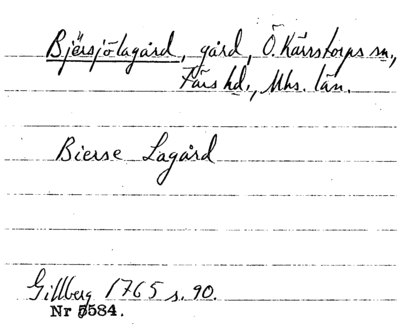 Bjärsjölagård, gård, Ö. Kärrstorps sn.,
Färs hd., Mhs. län.
Bierse Lagård
Gillberg 1765 s. 90.
Nr 5584.